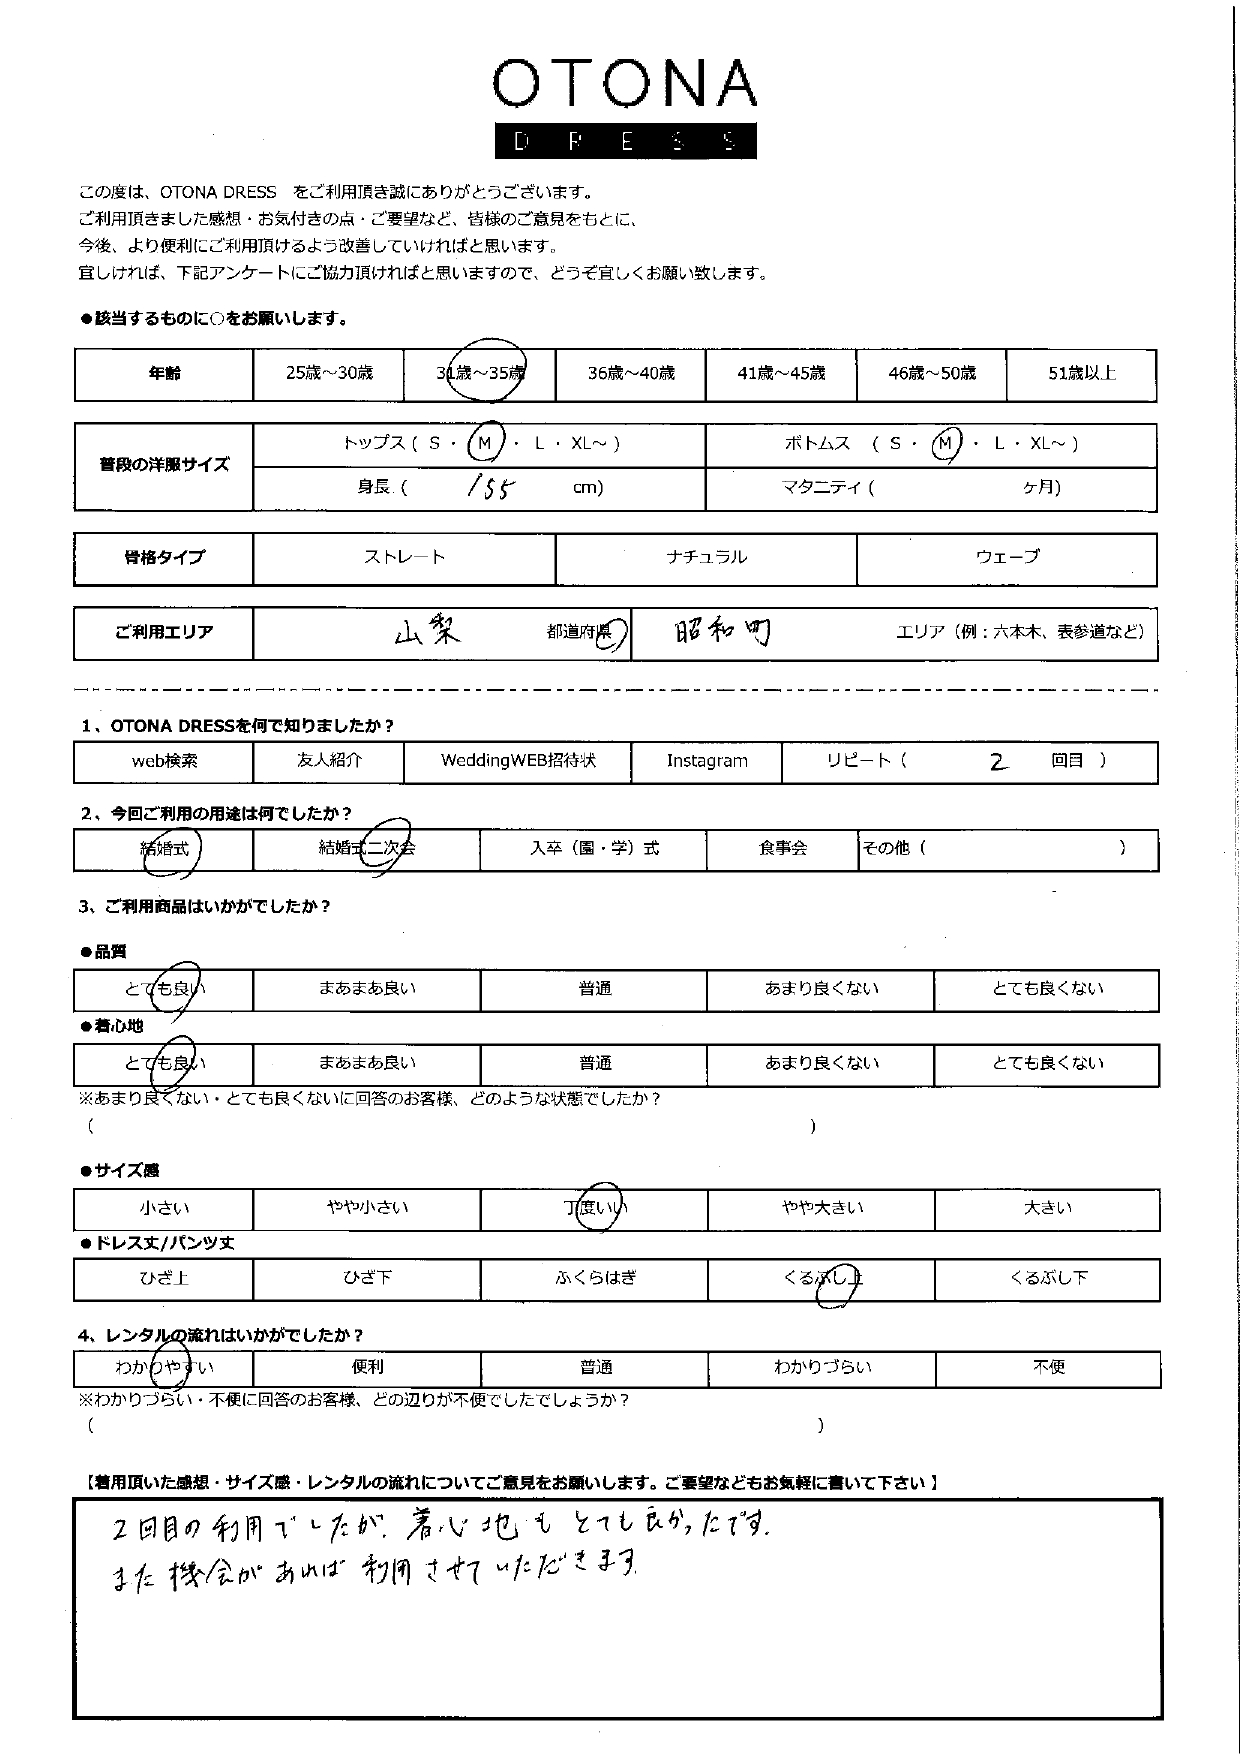 OTONA
DRESS
この度は、OTONA DRESS　をご利用頂き誠にありがとうございます。
ご利用頂きました感想・お気付きの点・ご要望など、皆様のご意見をもとに、
今後、より便利にご利用頂けるよう改善していければと思います。
宜しければ、下記アンケートにご協力頂ければと思いますので、どうぞ宜しくお願い致します。
●該当するものに○をお願いします。
年齢 25歳～30歳 31歳～35歳 36歳～40歳 41歳～45歳 46歳～50歳 51歳以上
普段の洋服サイズ トップス ( S ・ M ・ L ・ XL～ ) ボトムス ( S ・ M ・ L ・ XL～ )
身長 ( 155 cm) マタニティ ( ヶ月)
骨格タイプ ストレート ナチュラル ウェーブ
ご利用エリア 山梨 都道府県 昭和町 エリア（例：六本木、表参道など）
1、OTONA DRESSを何で知りましたか？
web検索 友人紹介 WeddingWEB招待状 Instagram リピート（ 2 回目 ）
2、今回ご利用の用途は何でしたか？
結婚式 結婚式二次会 入卒（園・学）式 食事会 その他（ ）
3、ご利用商品はいかがでしたか？
●品質
とても良い まあまあ良い 普通 あまり良くない とても良くない
●着心地
とても良い まあまあ良い 普通 あまり良くない とても良くない
※あまり良くない・とても良くないに回答のお客様、どのような状態でしたか？
（ ）
●サイズ感
小さい やや小さい 丁度いい やや大きい 大きい
●ドレス丈/パンツ丈
ひざ上 ひざ下 ふくらはぎ くるぶし上 くるぶし下
4、レンタルの流れはいかがでしたか？
わかりやすい 便利 普通 わかりづらい 不便
※わかりづらい・不便に回答のお客様、どの辺りが不便でしたでしょうか？
（ ）
【着用頂いた感想・サイズ感・レンタルの流れについてご意見をお願いします。ご要望などもお気軽に書いて下さい】
2回目の利用でしたが、着心地もとても良かったです。
また機会があれば利用させていただきます。